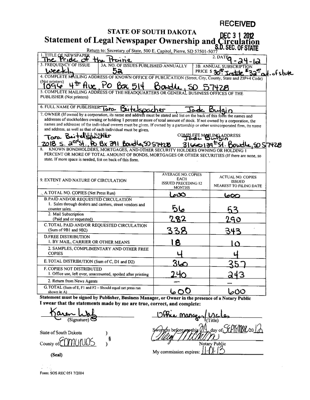 RECEIVED
DEC 31 2012
S.D. SEC. OF STATE
STATE OF SOUTH DAKOTA
Statement of Legal Newspaper Ownership and Circulation
Return to: Secretary of State, 500 E. Capitol, Pierre, SD 57501-5077
1. TITLE OF NEWSPAPER
2. DATE
The Pride of the Prairie
9-24-12
3. FREQUENCY OF ISSUE
3A. NO. OF ISSUES PUBLISHED ANNUALLY
3B. ANNUAL SUBSCRIPTION
Weekly
52
PRICE $ 30
4. COMPLETE MAILING ADDRESS OF KNOWN OFFICE OF PUBLICATION (Street, City, County, State and ZIP+4 Code)
(Not printers)
PO Box 514 Bowdle, SD 57428
5. COMPLETE MAILING ADDRESS OF THE HEADQUARTERS OR GENERAL BUSINESS OFFICES OF THE
PUBLISHER (Not printers)
6. FULL NAME OF PUBLISHER:
7. OWNER (If owned by a corporation, its name and address must be stated and also the names and
addresses of stockholders owning or holding 1 percent or more of total amount of stock. If not owned by a corporation, the
names and addresses of the individual owners must be given. If owned by a partnership or other unincorporated firm, its name
and address, as well as that of each individual must be given.
COMPLETE MAILING ADDRESS
Bowdle SD 57428
8. KNOWN BONDHOLDERS, MORTGAGEES, AND OTHER SECURITY HOLDERS OWNING OR HOLDING 1
PERCENT OR MORE OF TOTAL AMOUNT OF BONDS, MORTGAGES OR OTHER SECURITIES (If there are none, so
state. If more space is needed, list on back of this form.
9. EXTENT AND NATURE OF CIRCULATION
AVERAGE NO. COPIES
EACH
ISSUED PRECEDING 12
MONTHS
ACTUAL NO. COPIES
ISSUED
NEAREST TO FILING DATE
A. TOTAL NO. COPIES (Net Press Run)
600
600
B. PAID AND/OR REQUESTED CIRCULATION
1. Sales through dealers and carriers, street vendors and
counter sales.
56
53
2. Mail Subscription
(Paid and or requested)
282
290
C. TOTAL PAID AND/OR REQUESTED CIRCULATION
(Sum of 9B1 and 9B2)
338
343
D. FREE DISTRIBUTION
1. BY MAIL, CARRIER OR OTHER MEANS
18
10
2. SAMPLES, COMPLIMENTARY AND OTHER FREE
COPIES
4
4
E. TOTAL DISTRIBUTION (Sum of C, D1 and D2)
360
357
F. COPIES NOT DISTRIBUTED
1. Office use, left over, unaccounted, spoiled after printing
240
243
2. Return from News Agents
G. TOTAL (Sum of E, F1 and F2 – Should equal net press run
shown in A)
600
600
Statement must be signed by Publisher, Business Manager, or Owner in the presence of a Notary Public
I swear that the statements made by me are true, correct, and complete:
Office manager
(Signature)
(Title)
State of South Dakota )
§
County of Edmunds )
Notary Public
My commission expires:
(Seal)
Form: SOS REC 051 7/2004